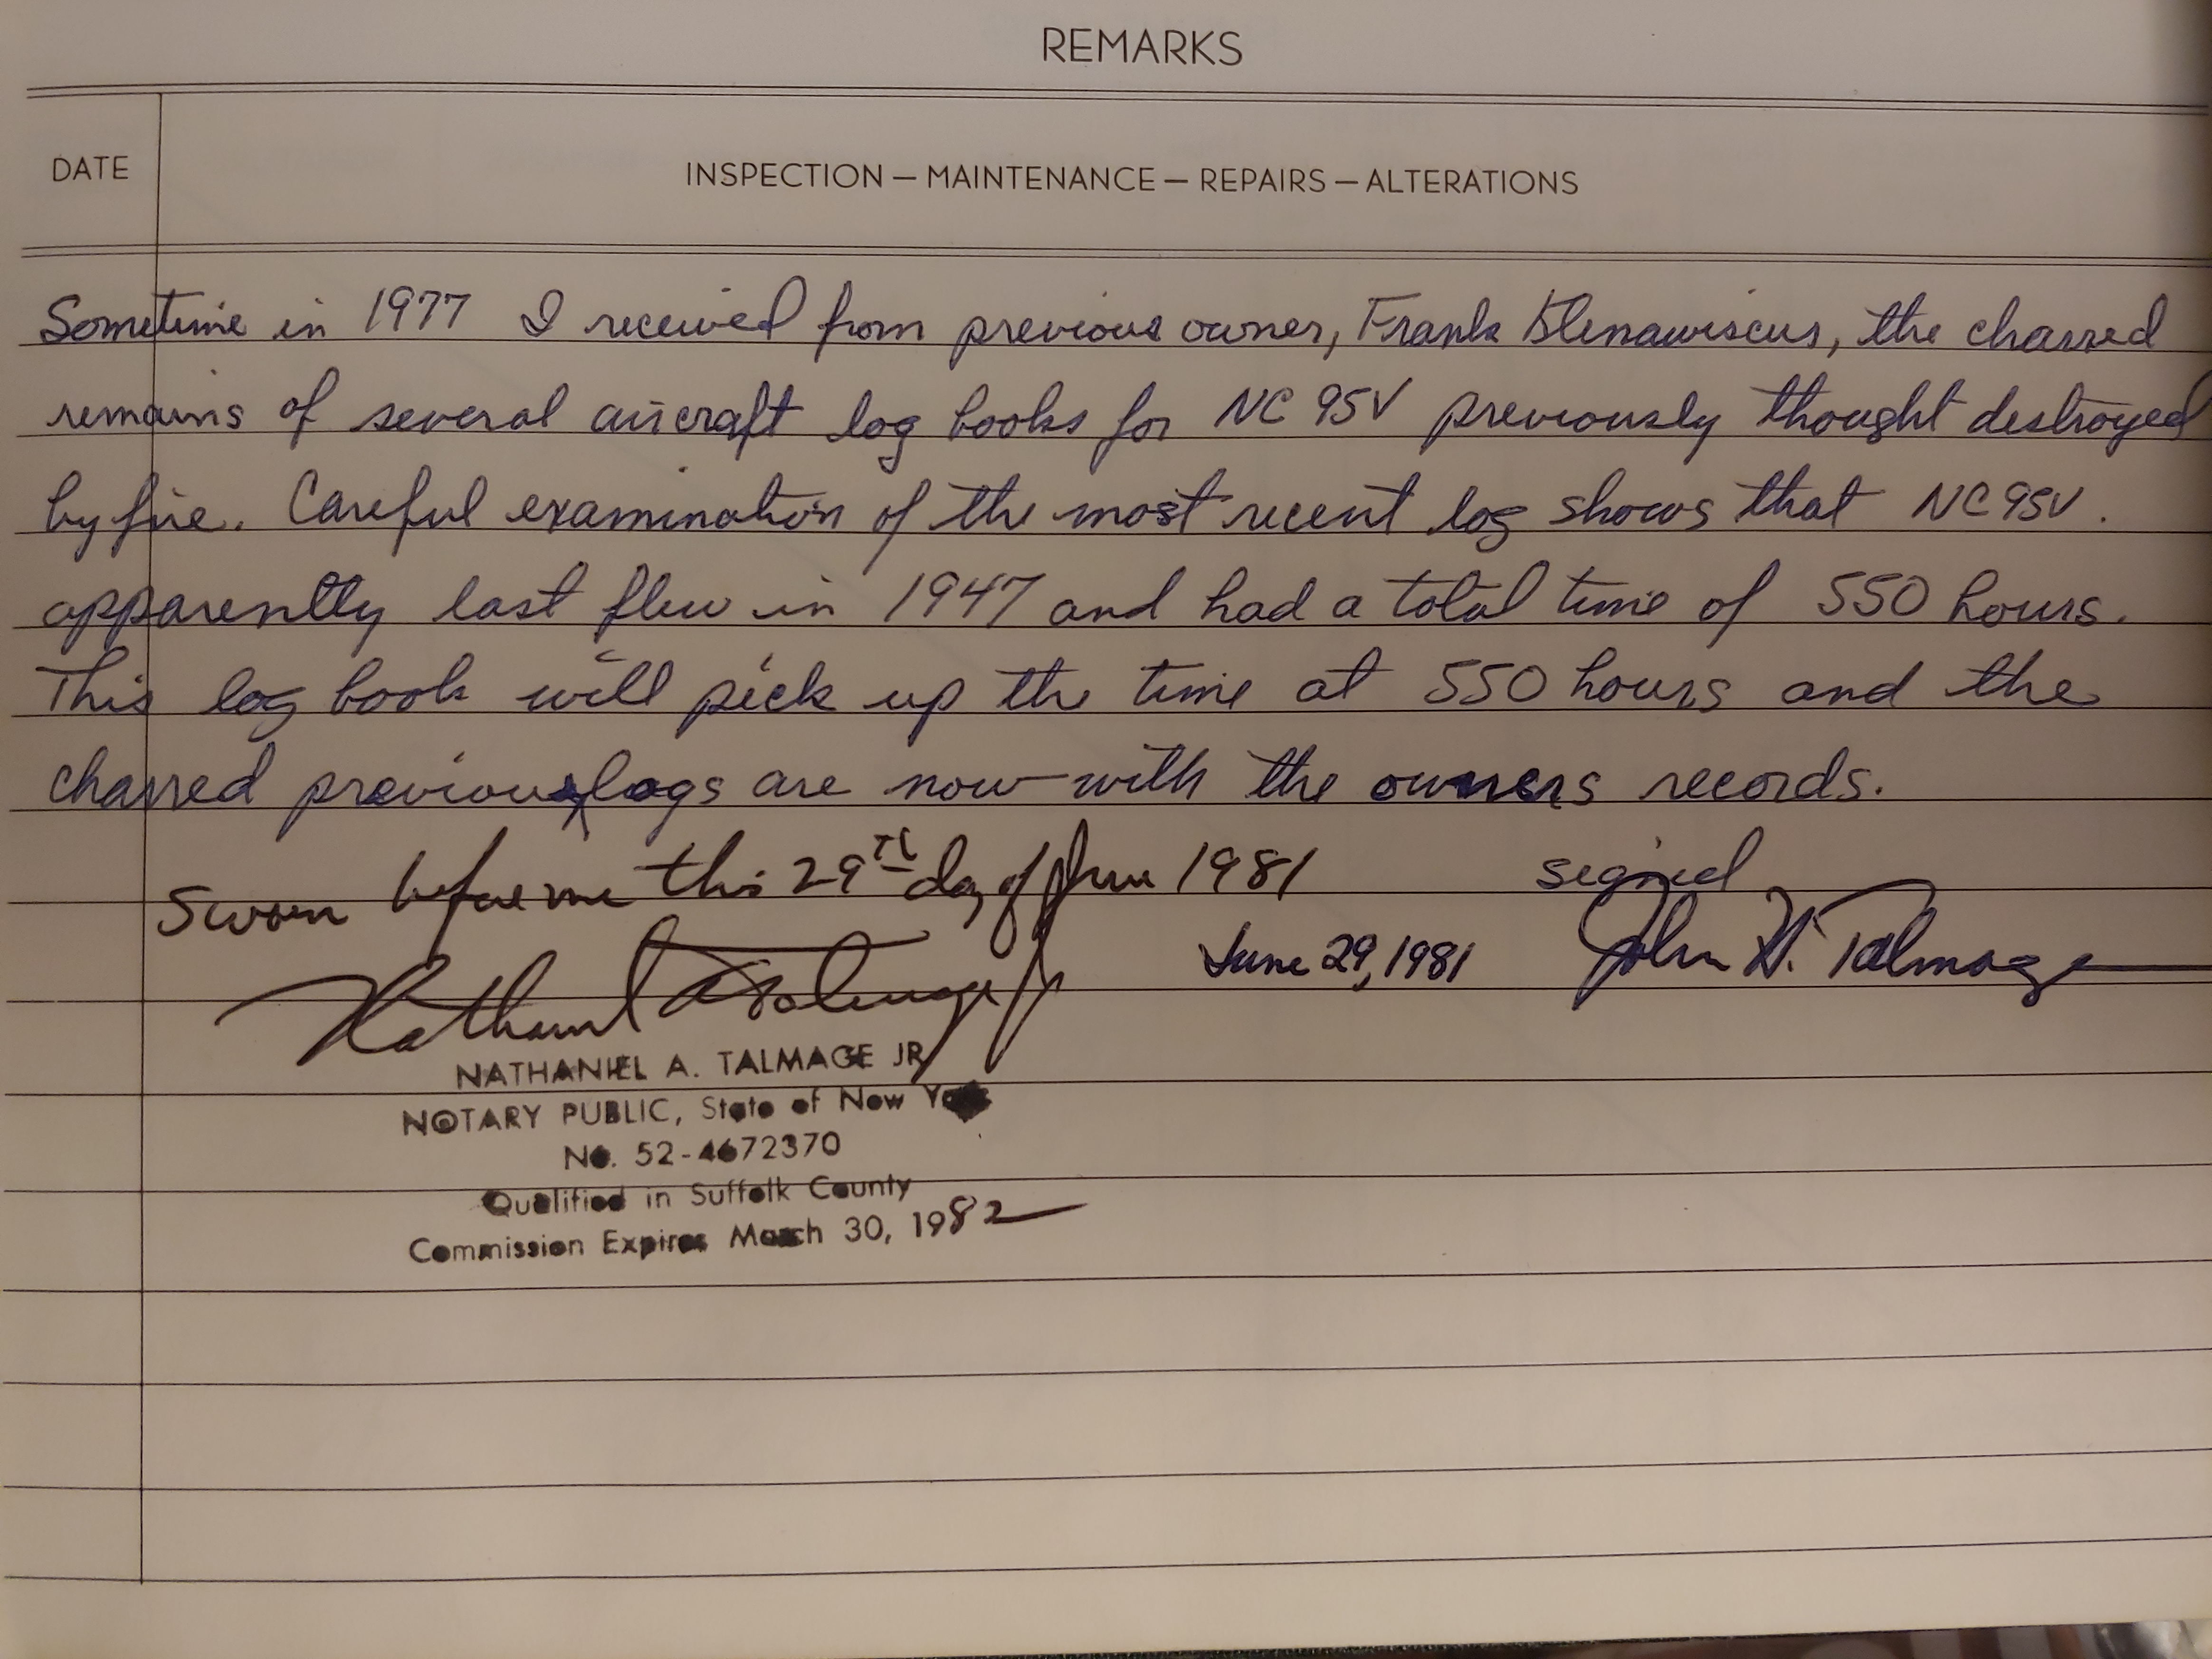 REMARKS
DATE
INSPECTION — MAINTENANCE — REPAIRS — ALTERATIONS
Sometime in 1977 I received from previous owner, Frank Klenawiscus, the charred
remains of several aircraft log books for NC 95V previously thought destroyed
by fire. Careful examination of the most recent log shows that NC95V.
apparently last flew in 1947 and had a total time of 550 hours.
This log book will pick up the time at 550 hours and the
charred previous logs are now with the owners records.
Sworn before me this 29th day of June 1981
signed
June 29, 1981
John H. Talmage
Nathaniel A Talmage Jr
NATHANIEL A. TALMAGE JR
NOTARY PUBLIC, State of New York
No. 52-4672370
Qualified in Suffolk County
Commission Expires March 30, 1982